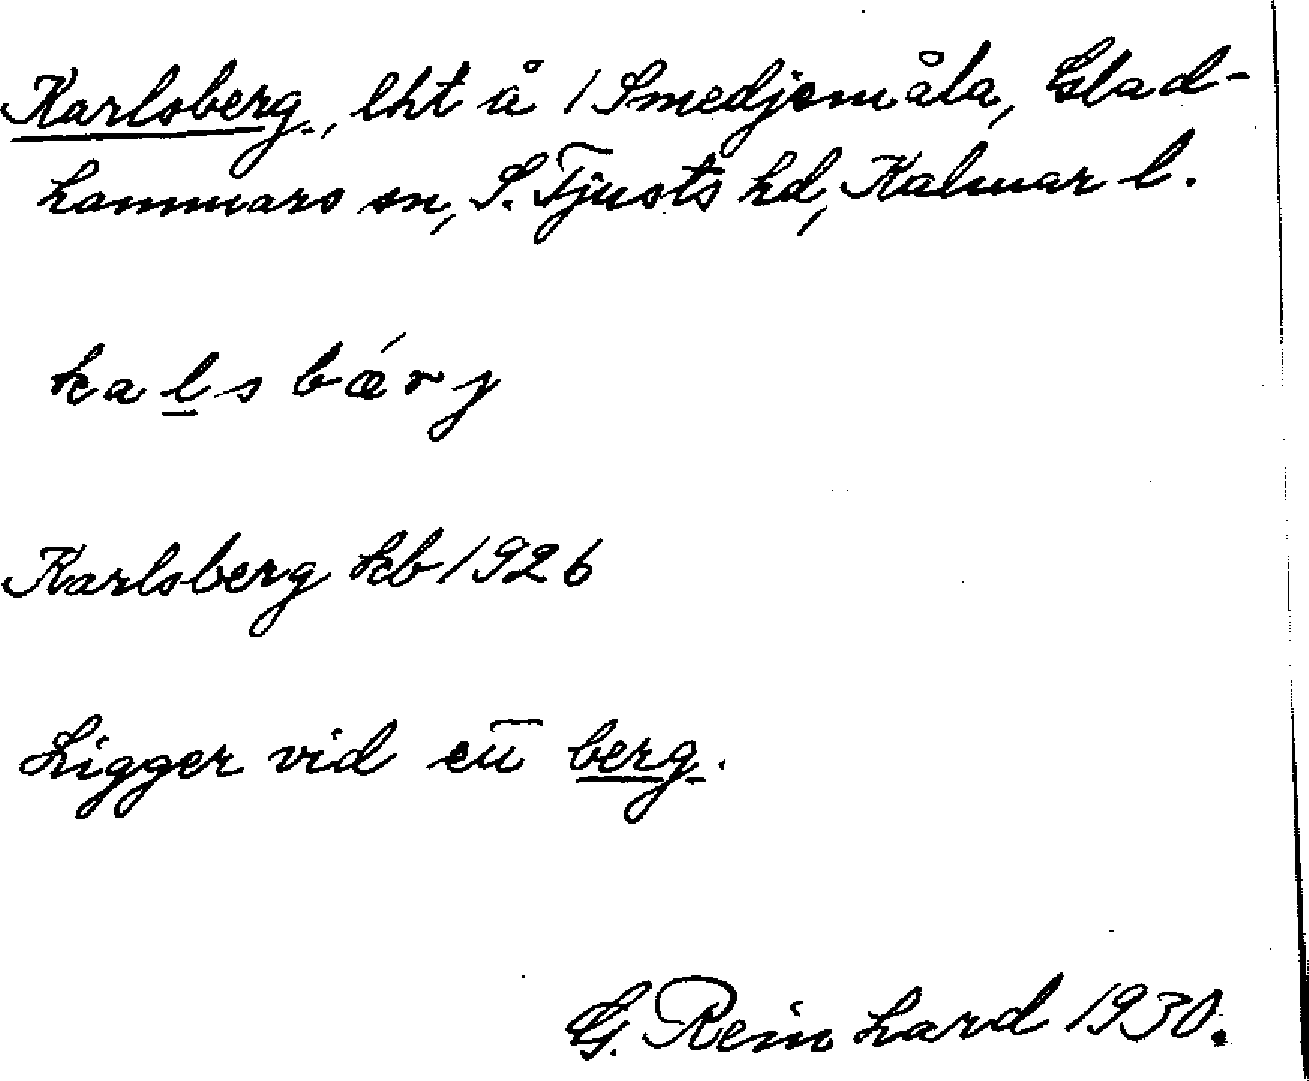 Karlsberg, lht å 1 Smedjemåla, Glad-
hammars sn, S. Tjusts hd, Kalmar l.
kalsbærj
Karlsberg kb 1926
Ligger vid ett berg.
G. Reinhard 1930.